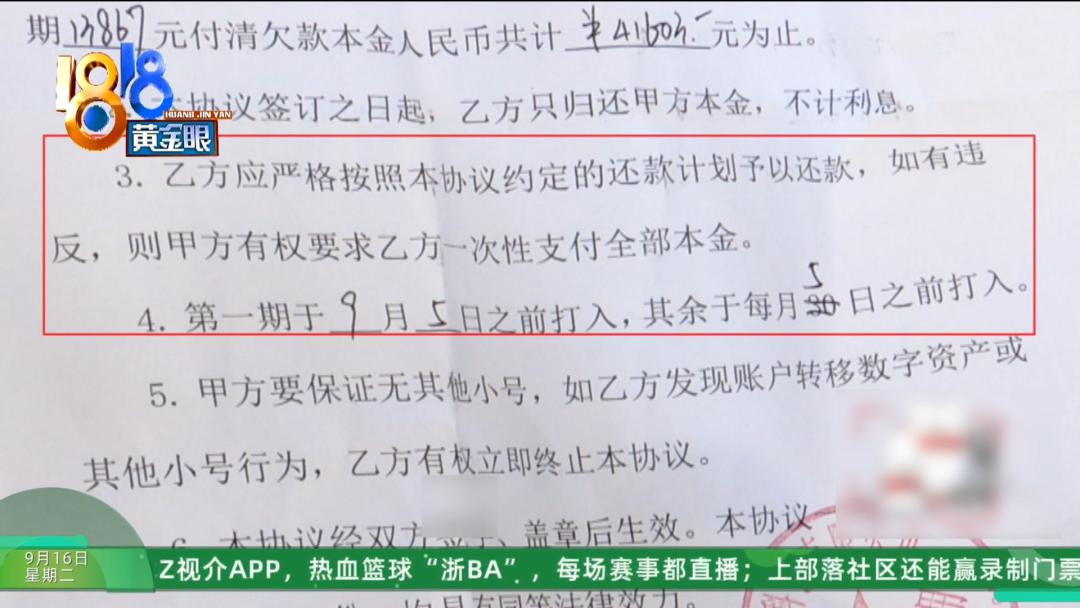 期13867元付清欠款本金人民币共计￥41603.-元为止。
1818
HUANG JIN YAN
黄金眼
本协议签订之日起，乙方只归还甲方本金，不计利息。
3. 乙方应严格按照本协议约定的还款计划予以还款，如有违
反，则甲方有权要求乙方一次性支付全部本金。
5
4. 第一期于9月5日之前打入，其余于每月30日之前打入。
5. 甲方要保证无其他小号，如乙方发现账户转移数字资产或
其他小号行为，乙方有权立即终止本协议。
6. 本协议经双方 盖章后生效。本协议
9月16日
星期二
Z视介APP，热血篮球“浙BA”，每场赛事都直播；上部落社区还能赢录制门票
具有同等法律效力。